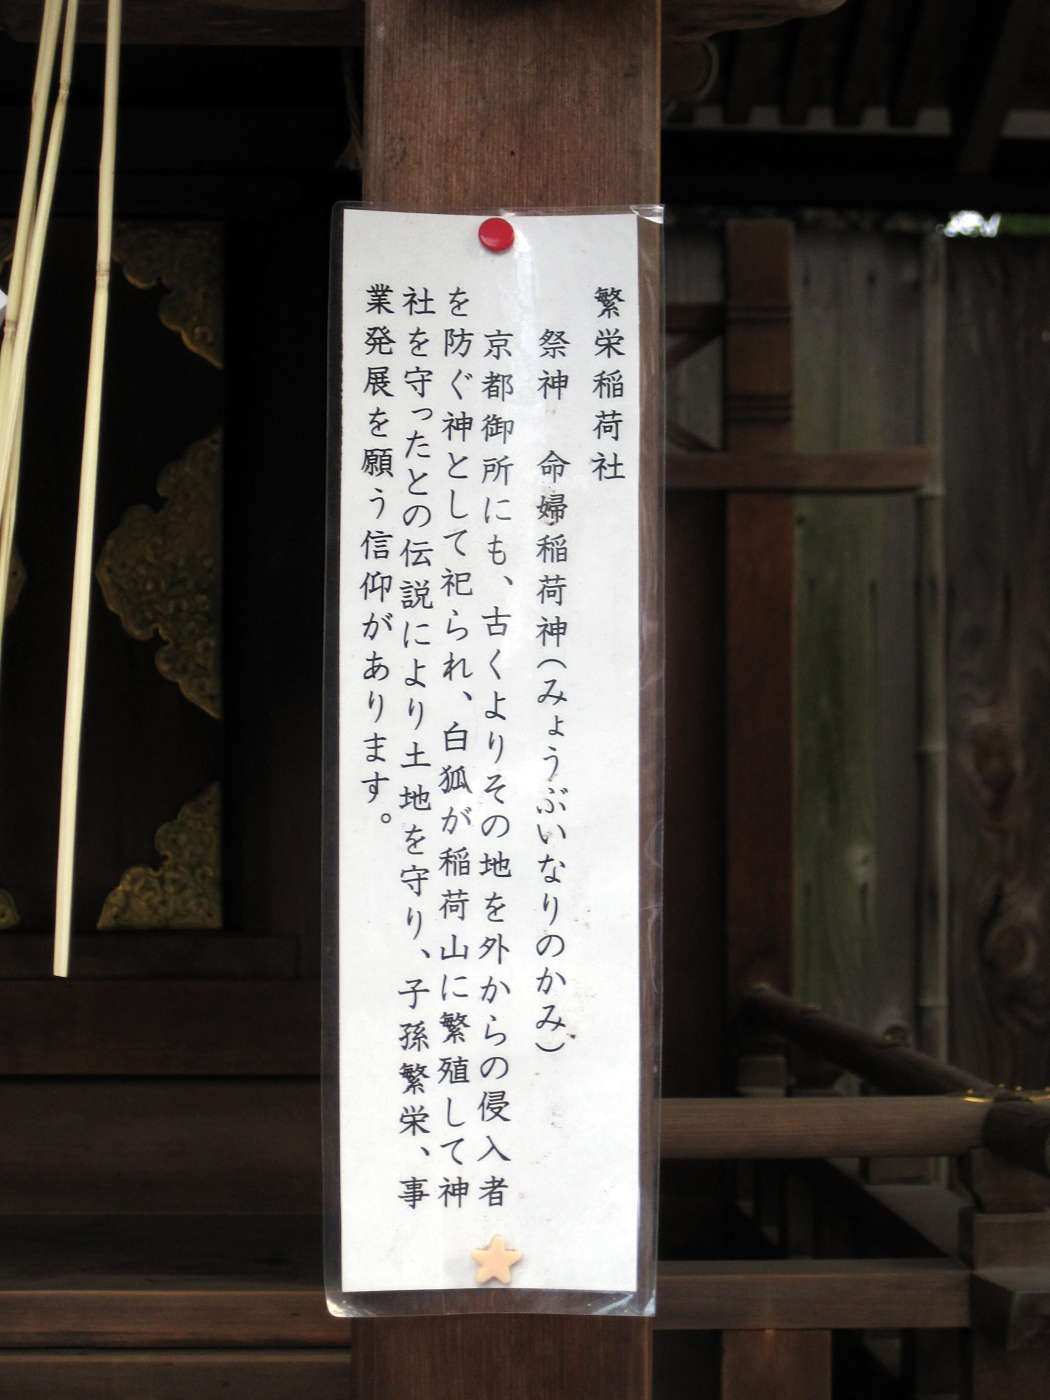 繁栄稲荷社
祭神　命婦稲荷神（みょうぶいなりのかみ）
京都御所にも、古くよりその地を外からの侵入者
を防ぐ神として祀られ、白狐が稲荷山に繁殖して神
社を守ったとの伝説により土地を守り、子孫繁栄、事
業発展を願う信仰があります。